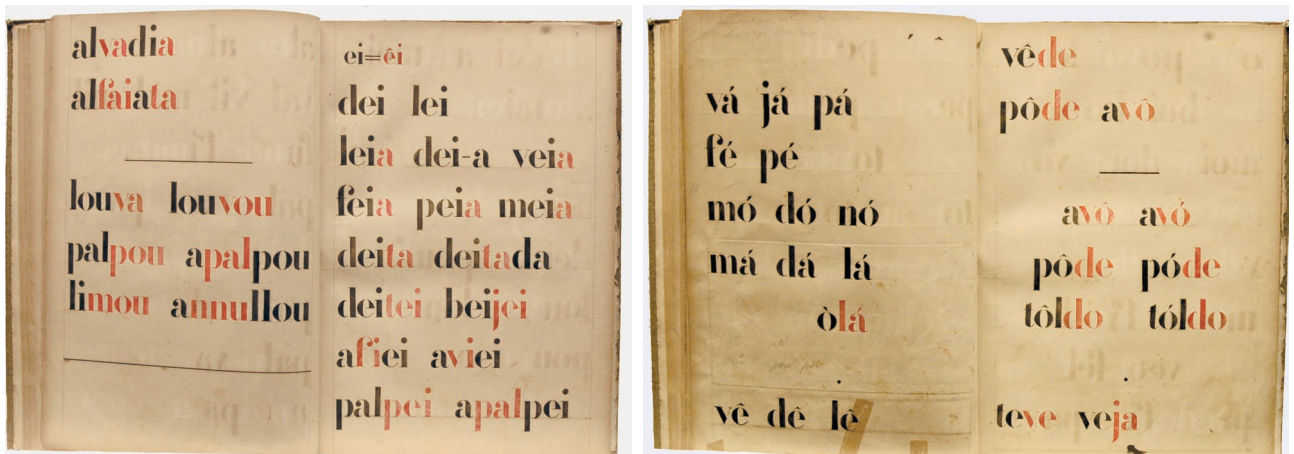 alvadia
alfaiata
louva louvou
palpou apalpou
limou annullou
ei=êi
dei lei
leia dei-a veia
feia peia meia
deita deitada
deitei beijei
afiei aviei
palpei apalpei
vá já pá
fé pé
mó dó nó
má dá lá
òlá
vê dê lê
vêde
pôde avô
avô avó
pôde póde
tôldo tóldo
teve veja